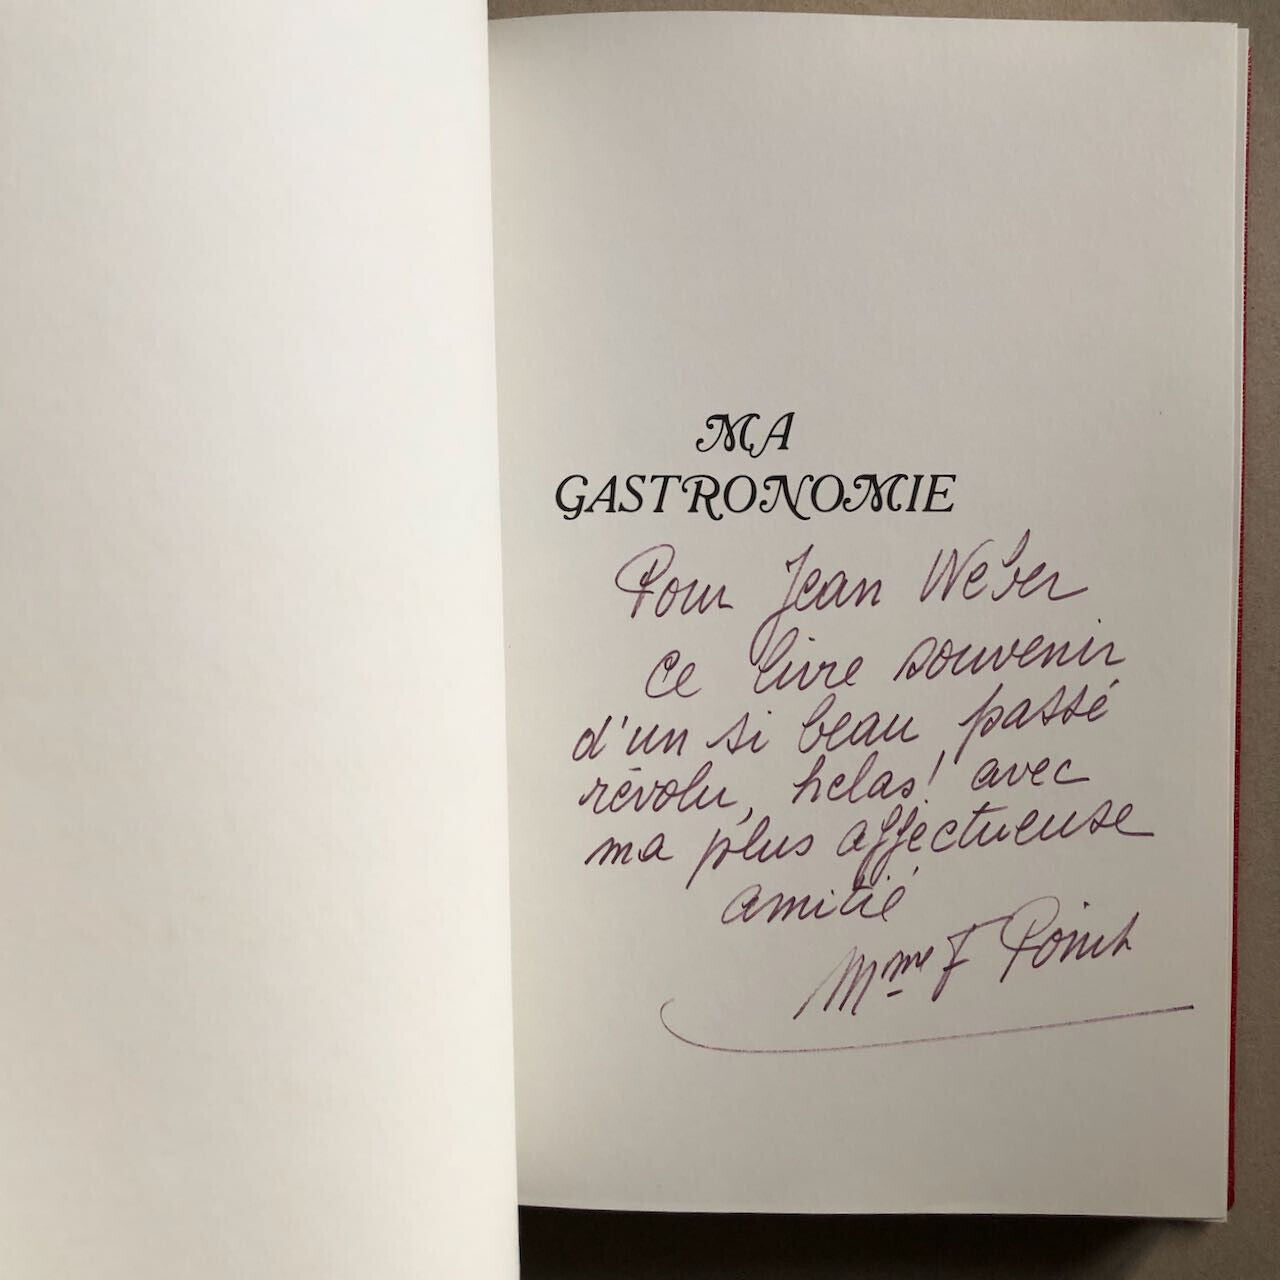 MA
GASTRONOMIE
Pour Jean Weber
ce livre souvenir
d'un si beau passé
révolu, helas! avec
ma plus affectueuse
amitié
Mme F Point